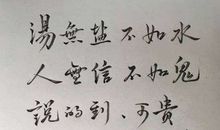 湯無盐不如水
人無信不如鬼
說的到、可貴